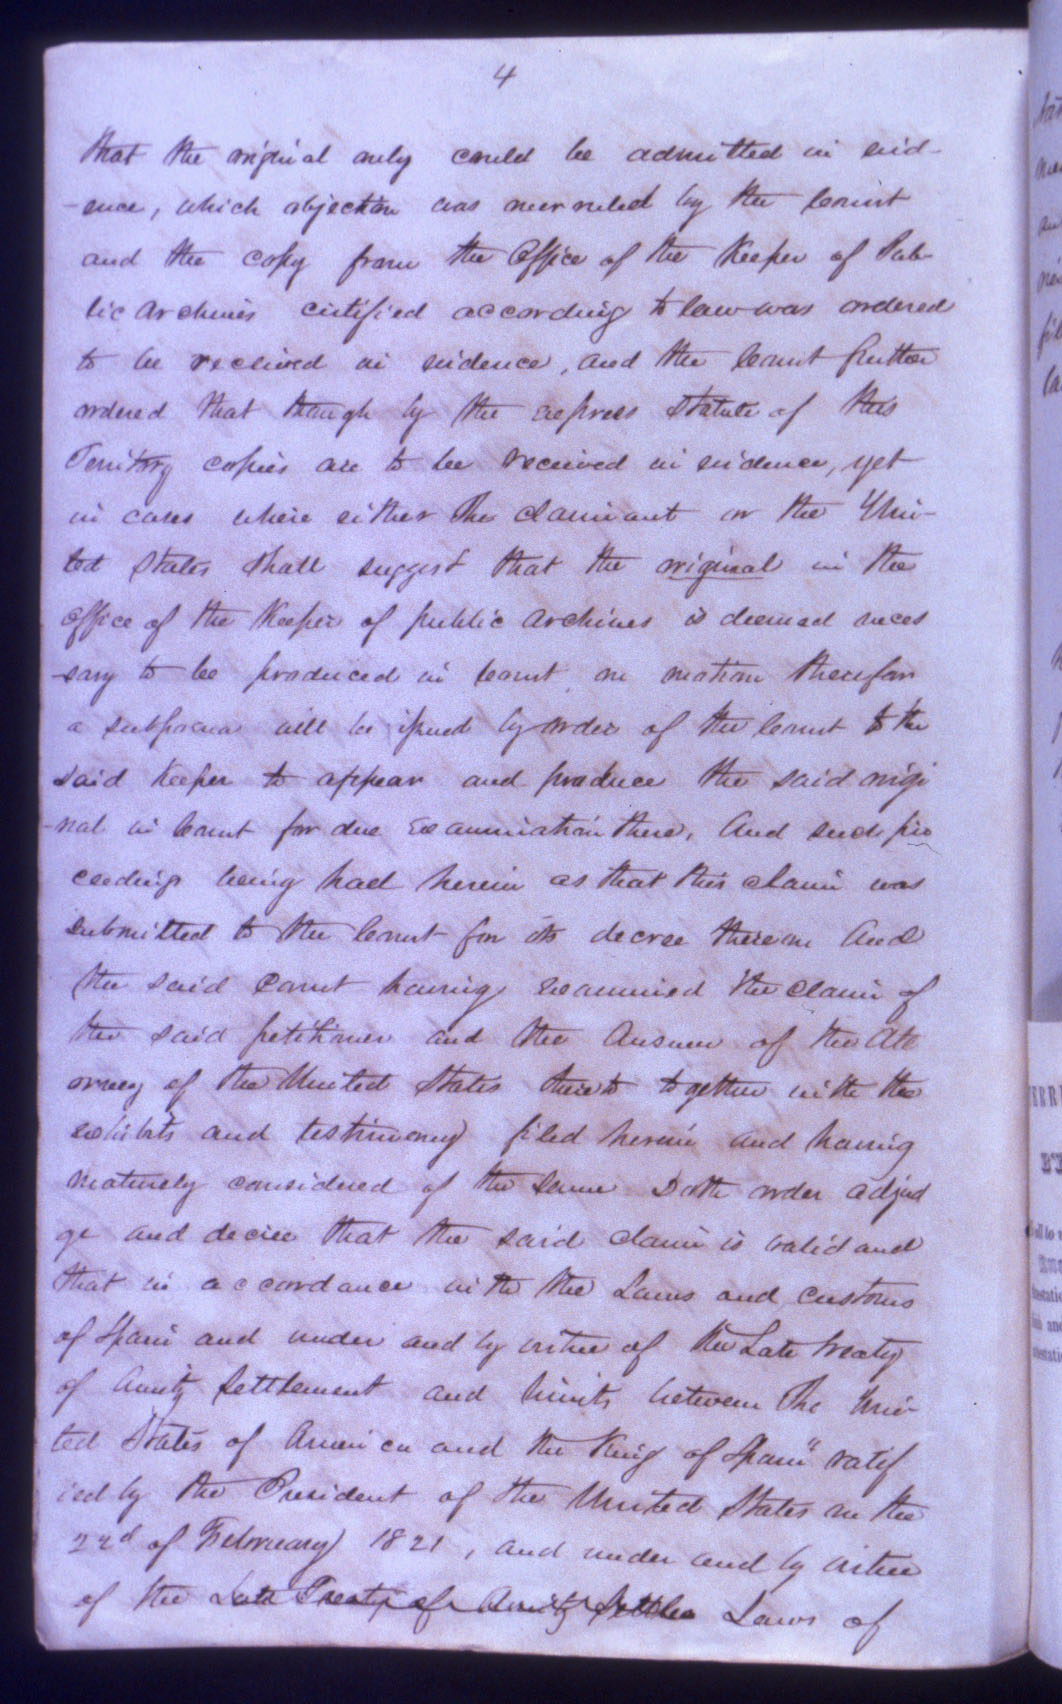 4
that the original only could be admitted in evid-
-ence, which objection was overruled by the Court
and the copy from the Office of the Keeper of Pub-
lic Archives certified according to law was ordered
to be received in evidence, and the Court further
ordered that though by the express Statute of this
Territory copies are to be received in evidence, yet
in cases where either The claimant or the Uni-
ted States shall suggest that the original in the
Office of the Keeper of public Archives is deemed neces
-sary to be produced in Court, on motion therefor
a subpoena will be issued by order of the Court to the
said Keeper to appear and produce the said origi
-nal in Court for due examination there, And such pro
ceedings being had herein as that this claim was
submitted to the Court for its decree thereon And
the said Court having examined the claim of
the said petitioner and the Answer of the Att
orney of the United States thereto together with the
exhibits and testimony filed herein and having
maturely considered of the same Doth order adjud
ge and decree that the said claim is valid and
that in accordance with the Laws and customs
of Spain and under and by virtue of the Late treaty
of Amity Settlement and limits between The Uni-
ted States of America and the King of Spain" ratif
ied by the President of the United States on the
22d of February 1821, and under and by virtue
of the Late Treaty of Amity Settle Laws of